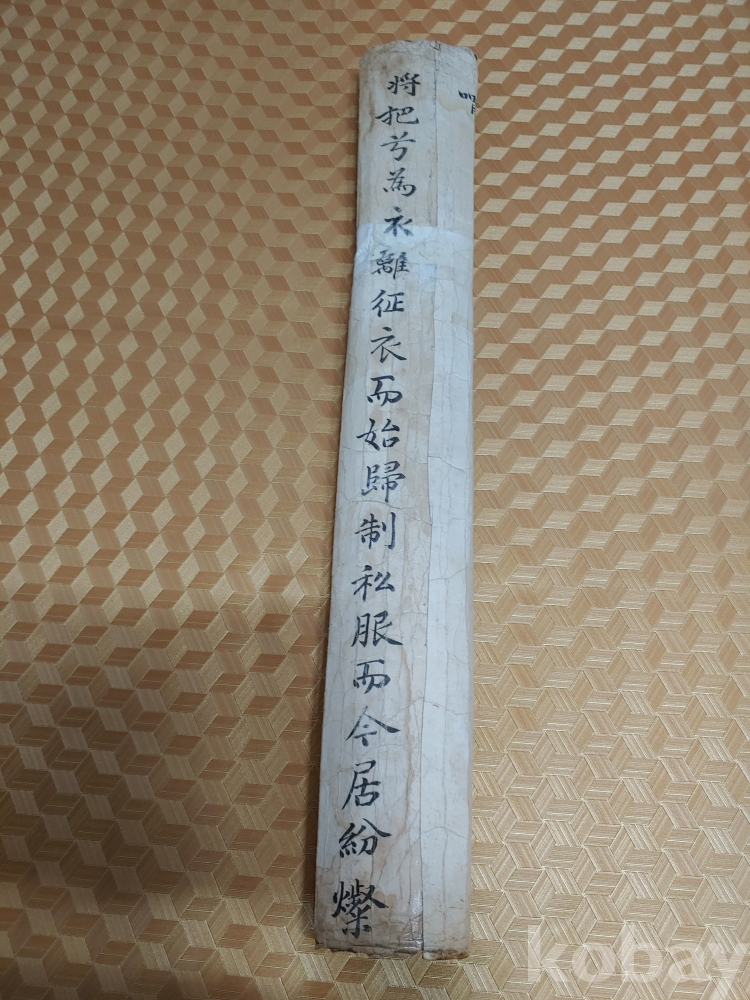 將把兮為衣離征衣而始歸制私服而今居紛燦
kobay